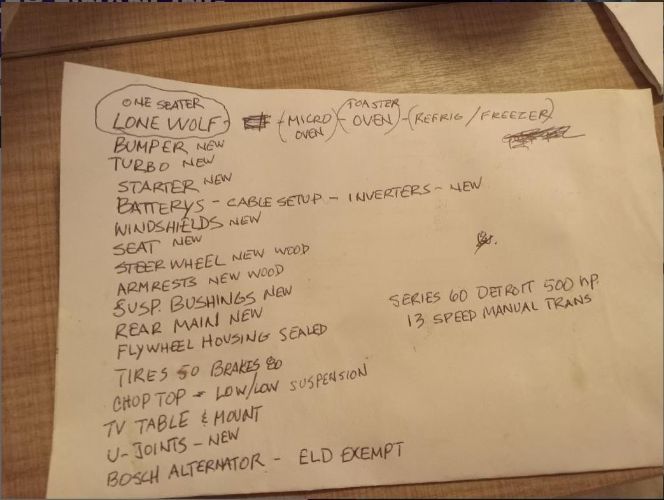 ONE SEATER
LONE WOLF - (MICRO OVEN) - (TOASTER OVEN) - (REFRIG / FREEZER)
BUMPER NEW
TURBO NEW
STARTER NEW
BATTERYS - CABLE SETUP - INVERTERS - NEW
WINDSHIELDS NEW
SEAT NEW
STEER WHEEL NEW WOOD
ARMRESTS NEW WOOD
SUSP. BUSHINGS NEW
REAR MAIN NEW
FLYWHEEL HOUSING SEALED
TIRES 50 BRAKES 80
CHOP TOP - LOW/LOW SUSPENSION
TV TABLE & MOUNT
U-JOINTS - NEW
BOSCH ALTERNATOR - ELD EXEMPT
SERIES 60 DETROIT 500 HP
13 SPEED MANUAL TRANS